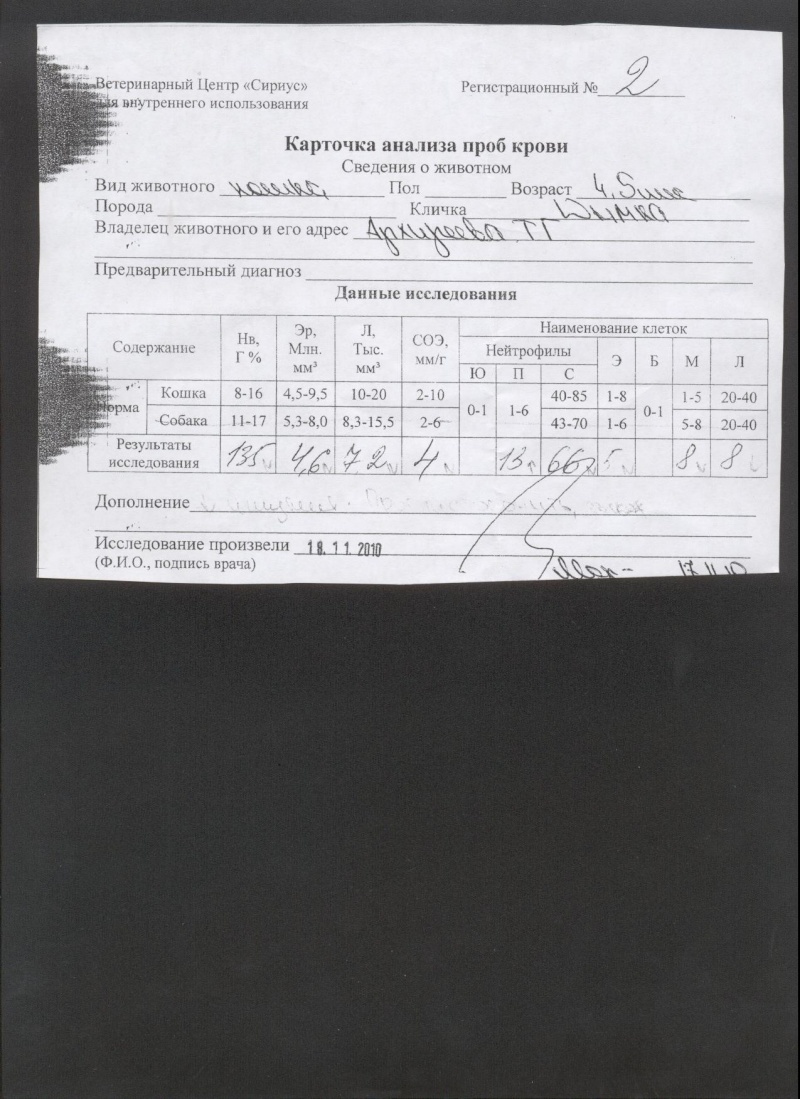 Ветеринарный Центр «Сириус»
Регистрационный № 2
внутреннего использования
Карточка анализа проб крови
Сведения о животном
Вид животного кошка Пол Возраст 4,5
Порода Кличка Дымка
Владелец животного и его адрес
Предварительный диагноз
Данные исследования
Содержание Нв, Г % Эр, Млн. мм³ Л, Тыс. мм³ СОЭ, мм/г Наименование клеток
Нейтрофилы Э Б М Л
Ю П С
Норма Кошка 8-16 4,5-9,5 10-20 2-10 0-1 1-6 40-85 1-8 0-1 1-5 20-40
Собака 11-17 5,3-8,0 8,3-15,5 2-6 43-70 1-6 5-8 20-40
Результаты исследования 135 4,6 7,2 4 13 66 5 8 8
Дополнение
Исследование произвели 18.11.2010
(Ф.И.О., подпись врача) 17.11.10